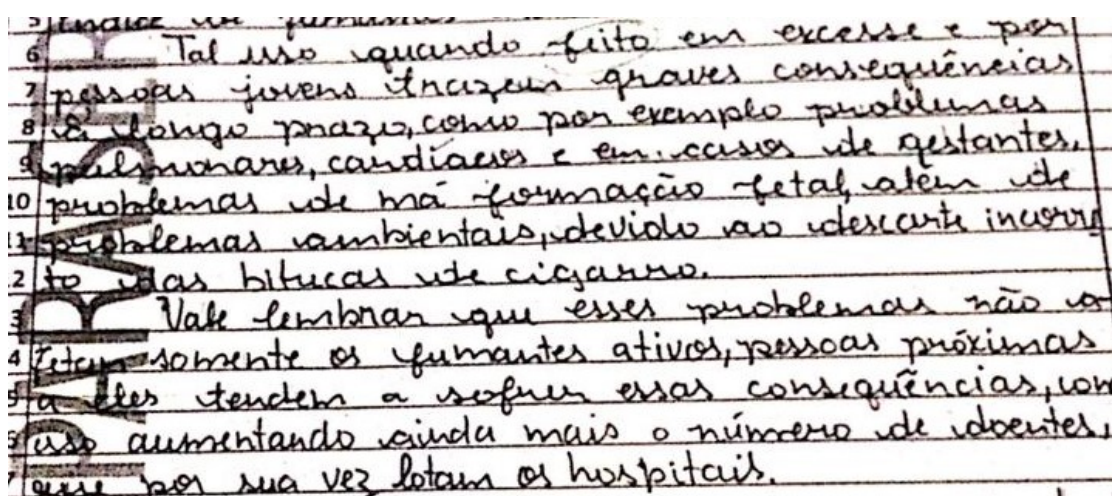 5 índice de fumantes
6 Tal uso quando feito em excesse e por
7 pessoas jovens trazem graves consequências
8 a longo prazo, como por exemplo problemas
9 pulmonares, cardíacos e em casos de gestantes,
10 problemas de má formação fetal, além de
11 problemas ambientais, devido ao descarte incorre
2 to das bitucas de cigarro.
3 Vale lembrar que esses problemas não a
4 fetam somente os fumantes ativos, pessoas próximas
5 a eles tendem a sofrer essas consequências, com
6 isso aumentando ainda mais o número de doentes,
7 que por sua vez lotam os hospitais.